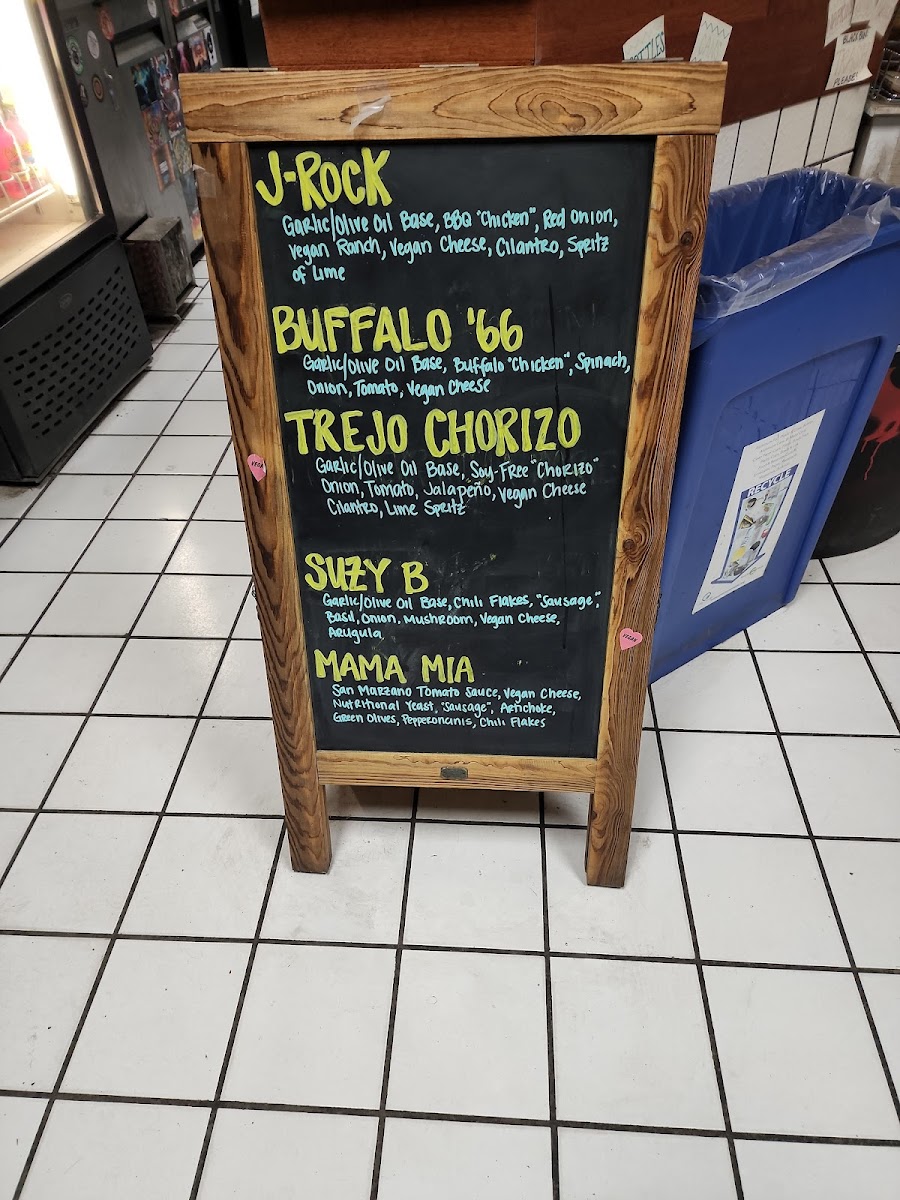 BOTTLES
BLACK BAG
PLEASE!
J-ROCK
Garlic/Olive Oil Base, BBQ "Chicken", Red Onion,
Vegan Ranch, Vegan Cheese, Cilantro, Spritz
of Lime
BUFFALO '66
Garlic/Olive Oil Base, Buffalo "Chicken", Spinach,
Onion, Tomato, Vegan Cheese
TREJO CHORIZO
Garlic/Olive Oil Base, Soy-Free "Chorizo"
Onion, Tomato, Jalapeño, Vegan Cheese
Cilantro, Lime Spritz
SUZY B
Garlic/Olive Oil Base, Chili Flakes, "Sausage",
Basil, Onion, Mushroom, Vegan Cheese,
Arugula
MAMA MIA
San Marzano Tomato Sauce, Vegan Cheese,
Nutritional Yeast, "Sausage", Artichoke,
Green Olives, Pepperoncinis, Chili Flakes
VEGAN
VEGAN
RECYCLE